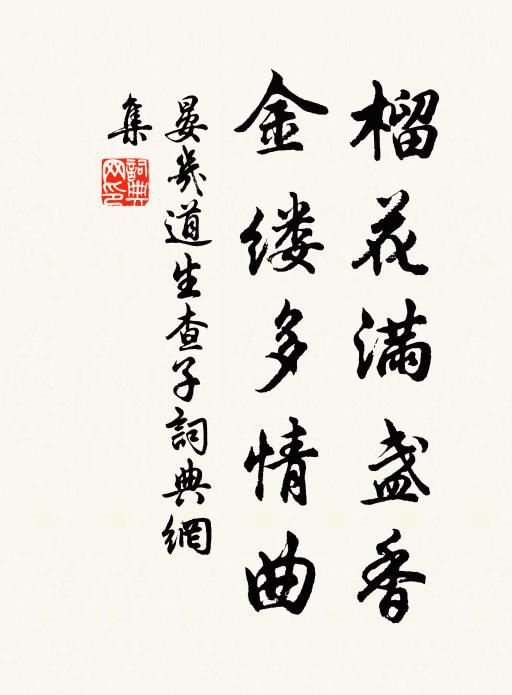 榴花满盏香
金缕多情曲
晏幾道生查子詞典網
集
詞典網印